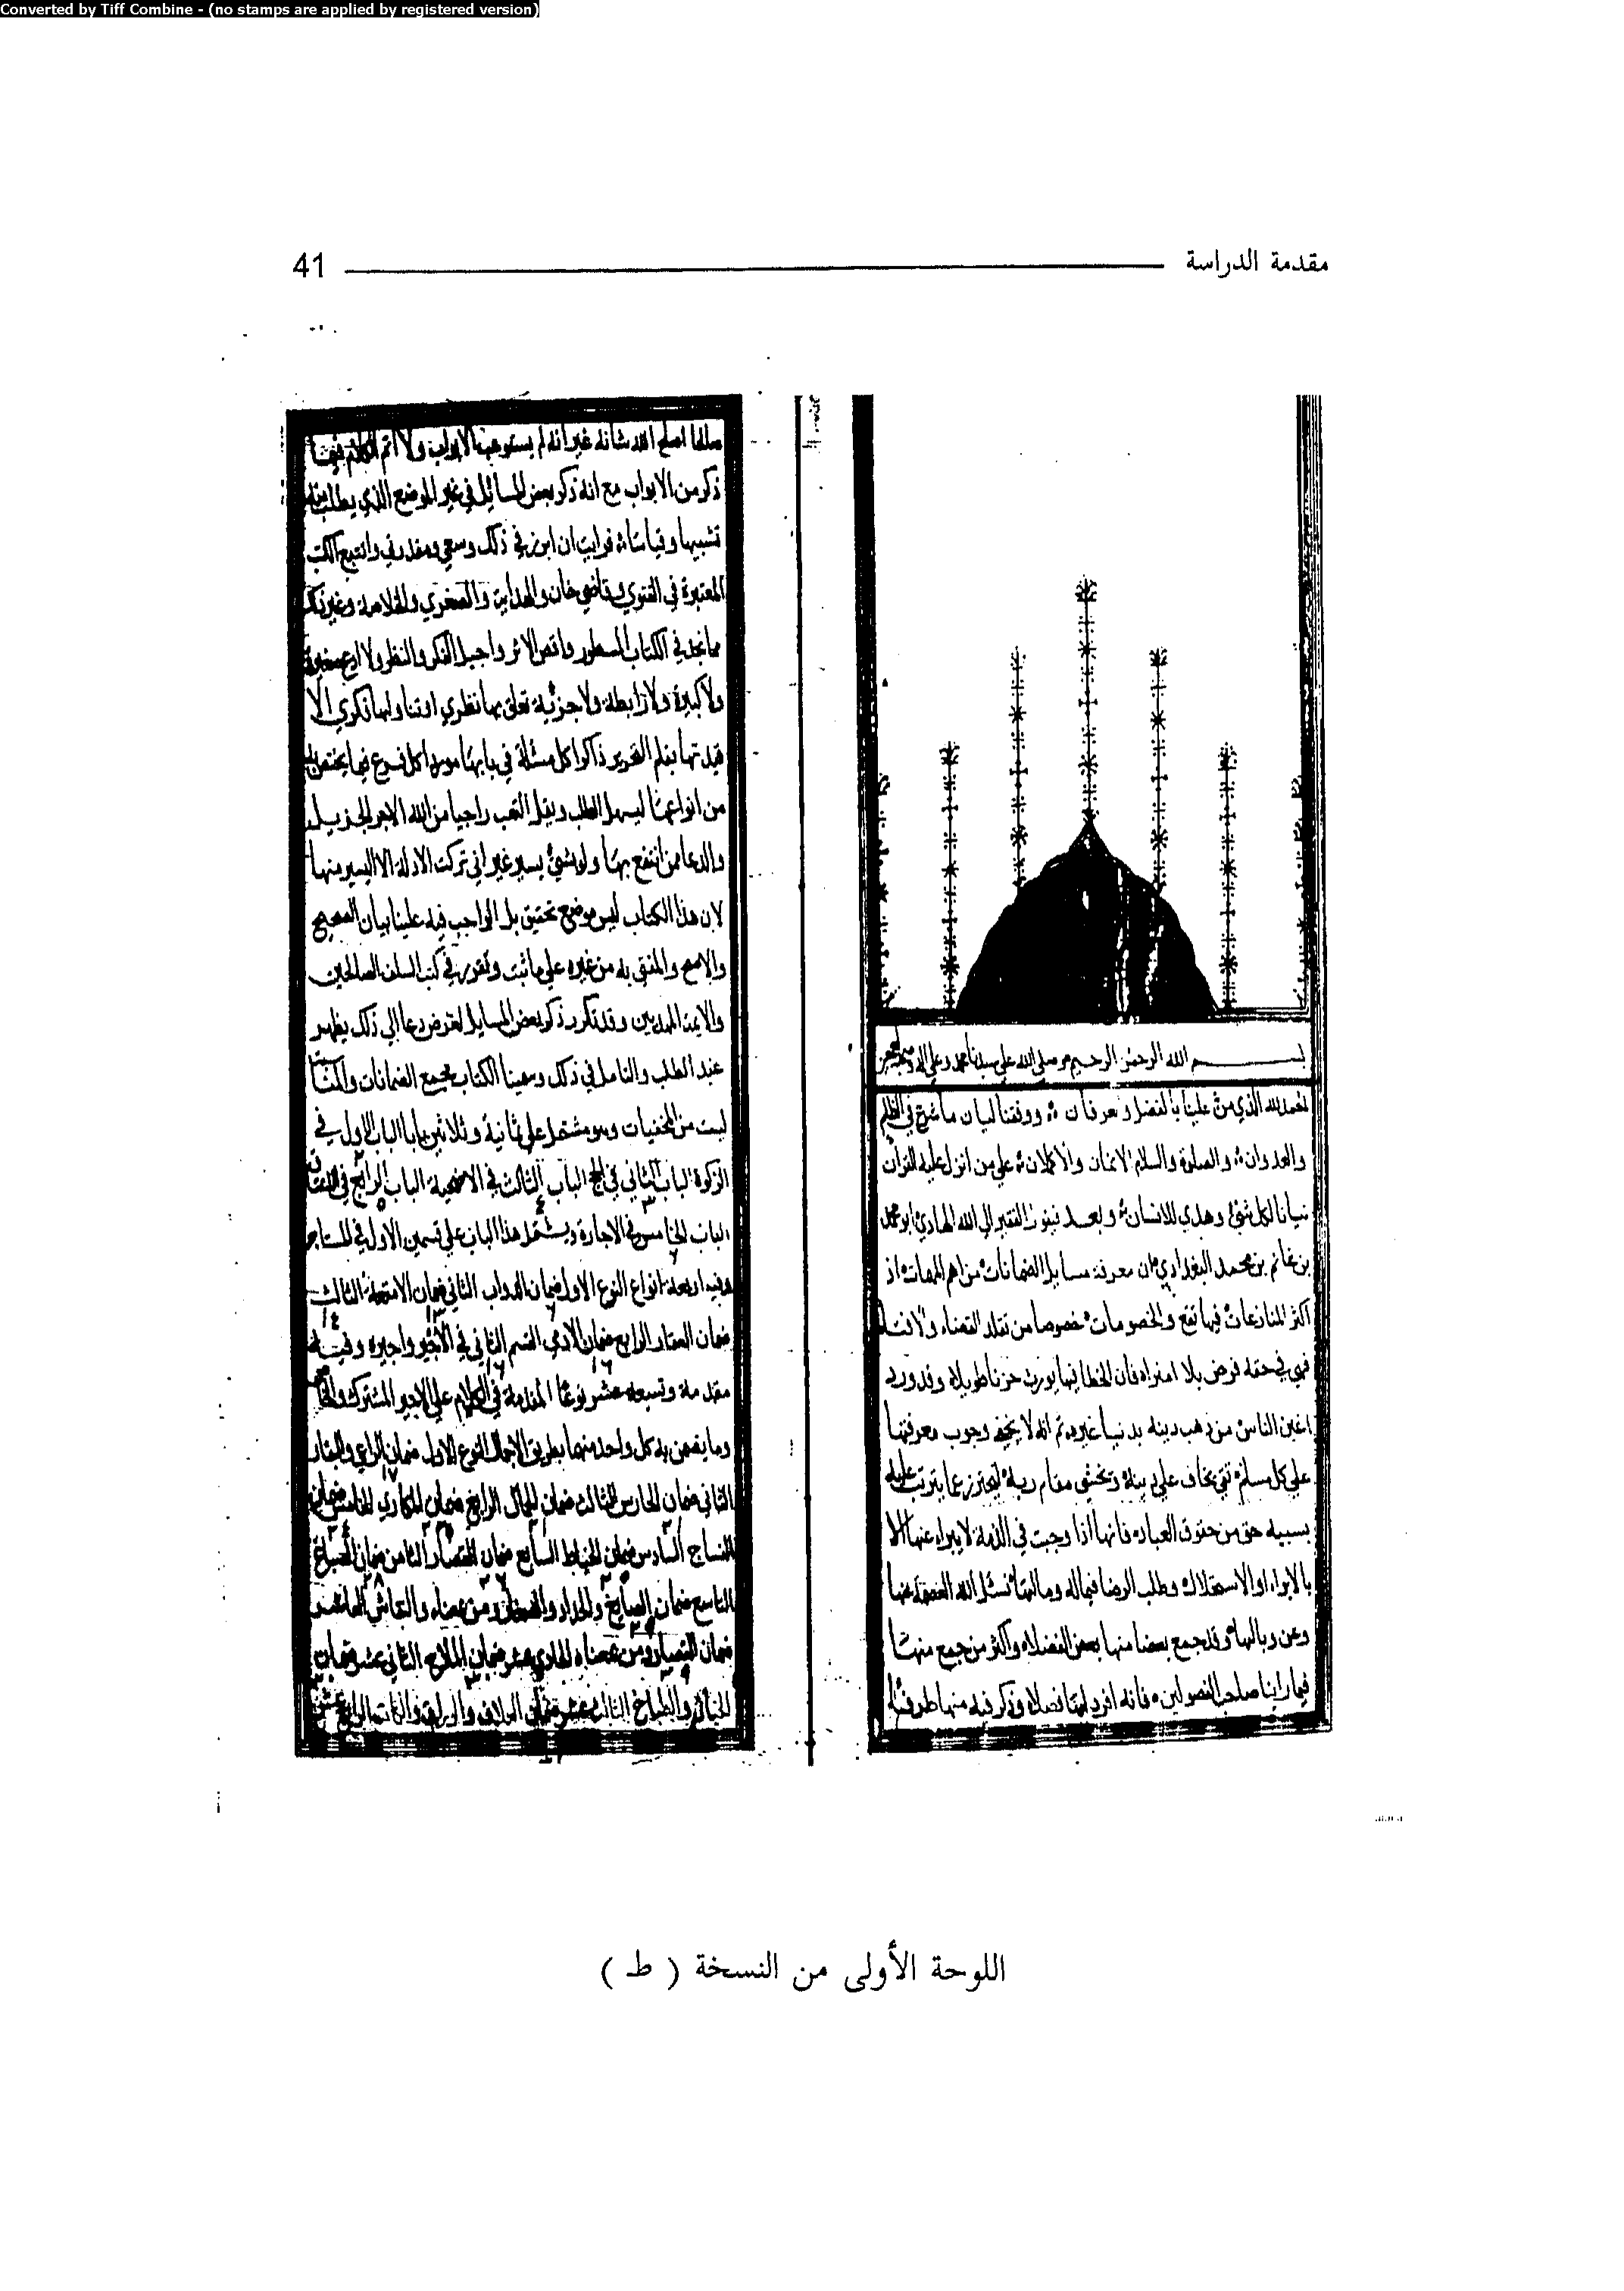 Converted by Tiff Combine - (no stamps are applied by registered version)
مقدمة الدراسة 41
بسم الله الرحمن الرحيم وصلى الله على سيدنا محمد وعلى اله وصحبه
الحمد لله الذي من علينا بالفضل ووفقنا لبيان ما شرع في الظلم
والعدوان والصلوة والسلام على من انزل عليه القران
تبيانا لكل شئ وهدي للانسان وبعد فيقول الفقير الي الله الهادي ابو محمد
بن غانم بن محمد البغدادي ان معرفة مسايل الضمانات من اهم المهمات اذ
اكثر المنازعات فيها تقع والخصومات خصوصا من تقلد القضاء والافتاء
فهي في حقه فرض بلا امتراء فان الخطا فيها يورث حزنا طويلا وقد ورد
اغبن الناس من ذهب دينه بدنيا غيره ثم انه لا يخفي وجوب معرفتها
علي كل مسلم تقي يخاف علي دينه ويخشي مقام ربه ليحترز عما يترتب عليه
بسببه حق من حقوق العباد فانها اذا وجبت في الذمة لا يبراء عنها الا
بالابراء او الاستحلال وطلب الرضا فيماله ومالها نسئل الله العفو عنها
وعن وبالها وقد جمع بعضا منها بعض الفضلاء واكثر من جمع منها
فيما راينا صاحب الفصولين فانه افرد لها فصلا وذكر فيه منها طرفا
اصلح الله شانه غير انه لم يستوعب الابواب ولا اتم الكلام فيما
ذكر من الابواب مع انه ذكر بعض المسائل في غير الموضع الذي يطلب منه
تشبيها وقياسا فرايت ان ابذل في ذلك وسعي ومقدرتي واتتبع الكتب
المعتبرة في الفتوي وقاضي خان والهداية والصغري والخلاصة وغير ذلك
مما نجد في الكتاب المسطور واقص الاثر واجيل الفكر والنظر ولا ادع صغيرة
ولا كبيرة ولا رابطة ولا جزئية تعلق بها نظري او تناولها فكري الا
قيدتها بقلم التحرير ذاكرا كل مسئلة في بابها موردا كل فرع فيما يختص به
من انواعها ليسهل الطلب ويقل التعب راجيا من الله الاجر الجزيل
والدعا ممن انتفع بها ولو بشئ يسير غير اني تركت الادلة الا اليسير منها
لان هذا الكتاب ليس موضع تحقيق بل الواجب فيه علينا بيان الصحيح
والاصح والمفتي به من غيره علي ما ثبت وتقرر في كتب السلف الصالحين
والايمة المهديين وقد تكرر ذكر بعض المسايل لغرض دعا الي ذلك يظهر
عند الطلب والتامل في ذلك وسمينا الكتاب بمجمع الضمانات
ليست من المخفيات وهو مشتمل علي ثمانية وثلاثين بابا الباب الاول في
الزكوة الباب الثاني في الحج الباب الثالث في الاضحية الباب الرابع في
الباب الخامس في الاجارة ويشتمل هذا الباب علي قسمين الاول في المستاجر
وفيه اربعة انواع النوع الاول ضمان الدواب الثاني ضمان الامتعة الثالث
ضمان العقار الرابع ضمان الادمي القسم الثاني في الاجير واجيره وفيه
مقدمة وتسعة عشر نوعا المقدمة في الكلام علي الاجير المشترك والخاص
وما يضمن به كل واحد منهما بطريق الاجمال النوع الاول ضمان الراعي والبقار
الثاني ضمان الحارس الثالث ضمان الحمال الرابع ضمان المكاري الخامس ضمان
النساج السادس ضمان الخياط السابع ضمان القصار الثامن ضمان الصباغ
التاسع ضمان الصايغ والحداد والصفار ومن بمعناه والنقاش العاشر
ضمان الفصاد ومن بمعناه الحادي عشر ضمان الملاح الثاني عشر ضمان
الخباز والطباخ الثالث عشر ضمان الغلاف والوراق والكاتب الرابع عشر
اللوحة الأولى من النسخة ( ط )